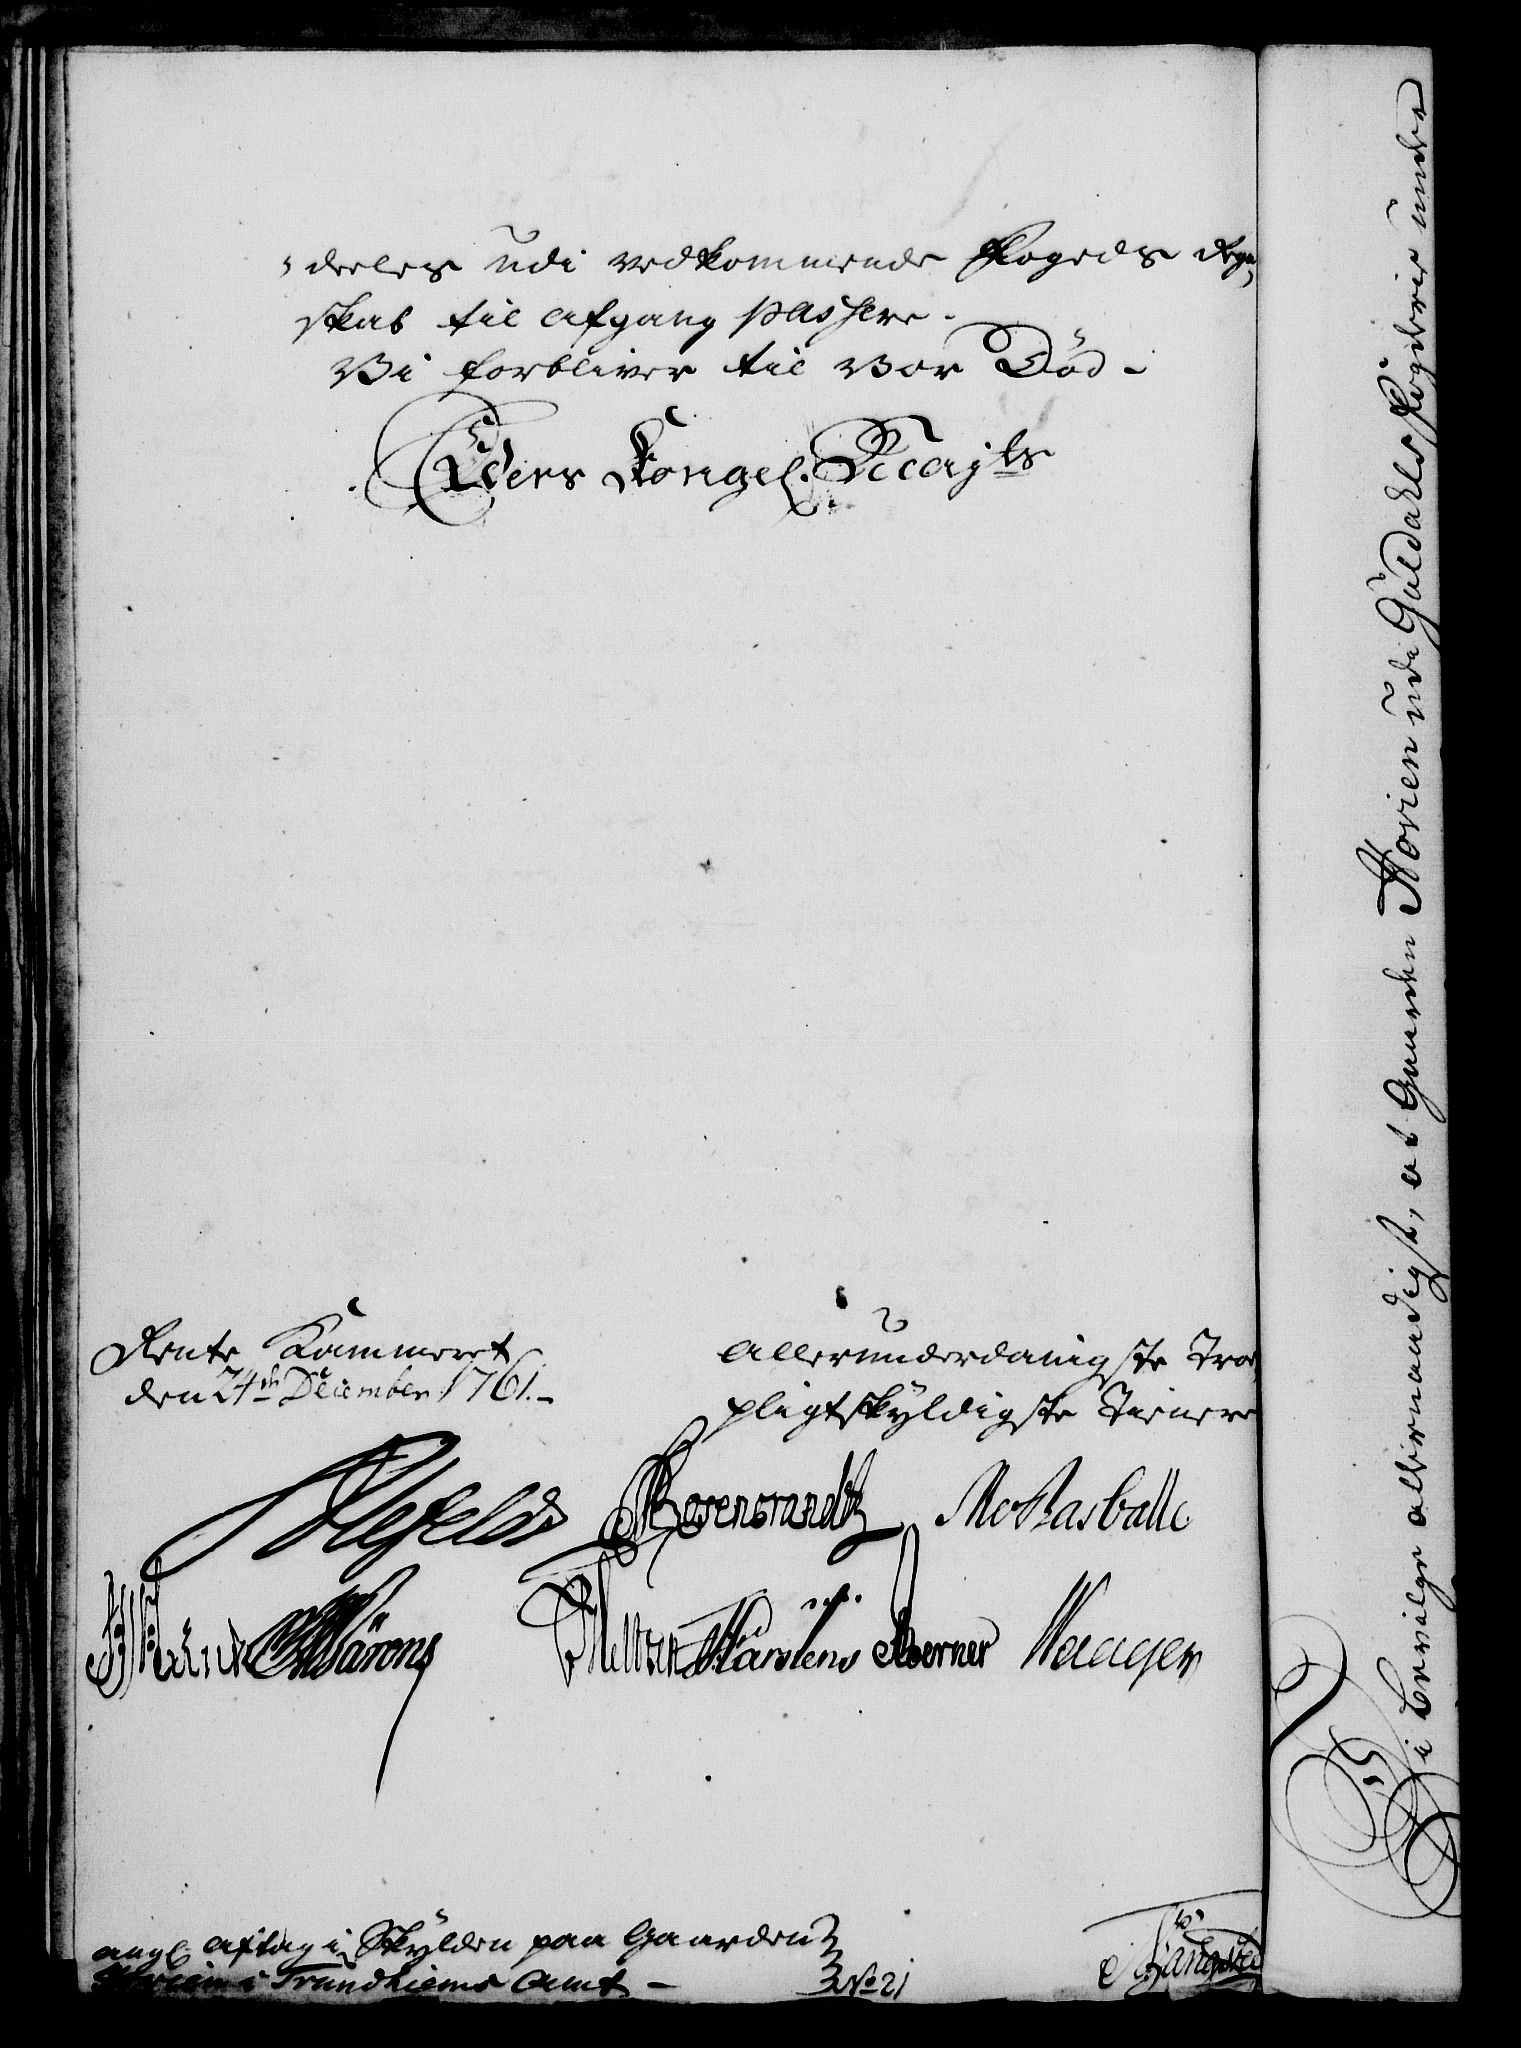 deeles udi vedkommende Fogeds Regn
skab til afgang passere.
Vi forbliver til vor Död.
Eders Kongel. Mayts
Rente Kammeret
den 24de December 1761.
allerunderdanigste Troe
pligtskyldigste Tienere
Ahlefeldt Rosencrandtz MoRasballe
Bärens Meltzen Karstens Koerner Waager
angl. aftag i Skylden paa Gaarden
Horien i Trundhiems Amt -
No 21
Vi bevilge allernaadigst, at Gaarden Horien udi Guldahls Fogderie under